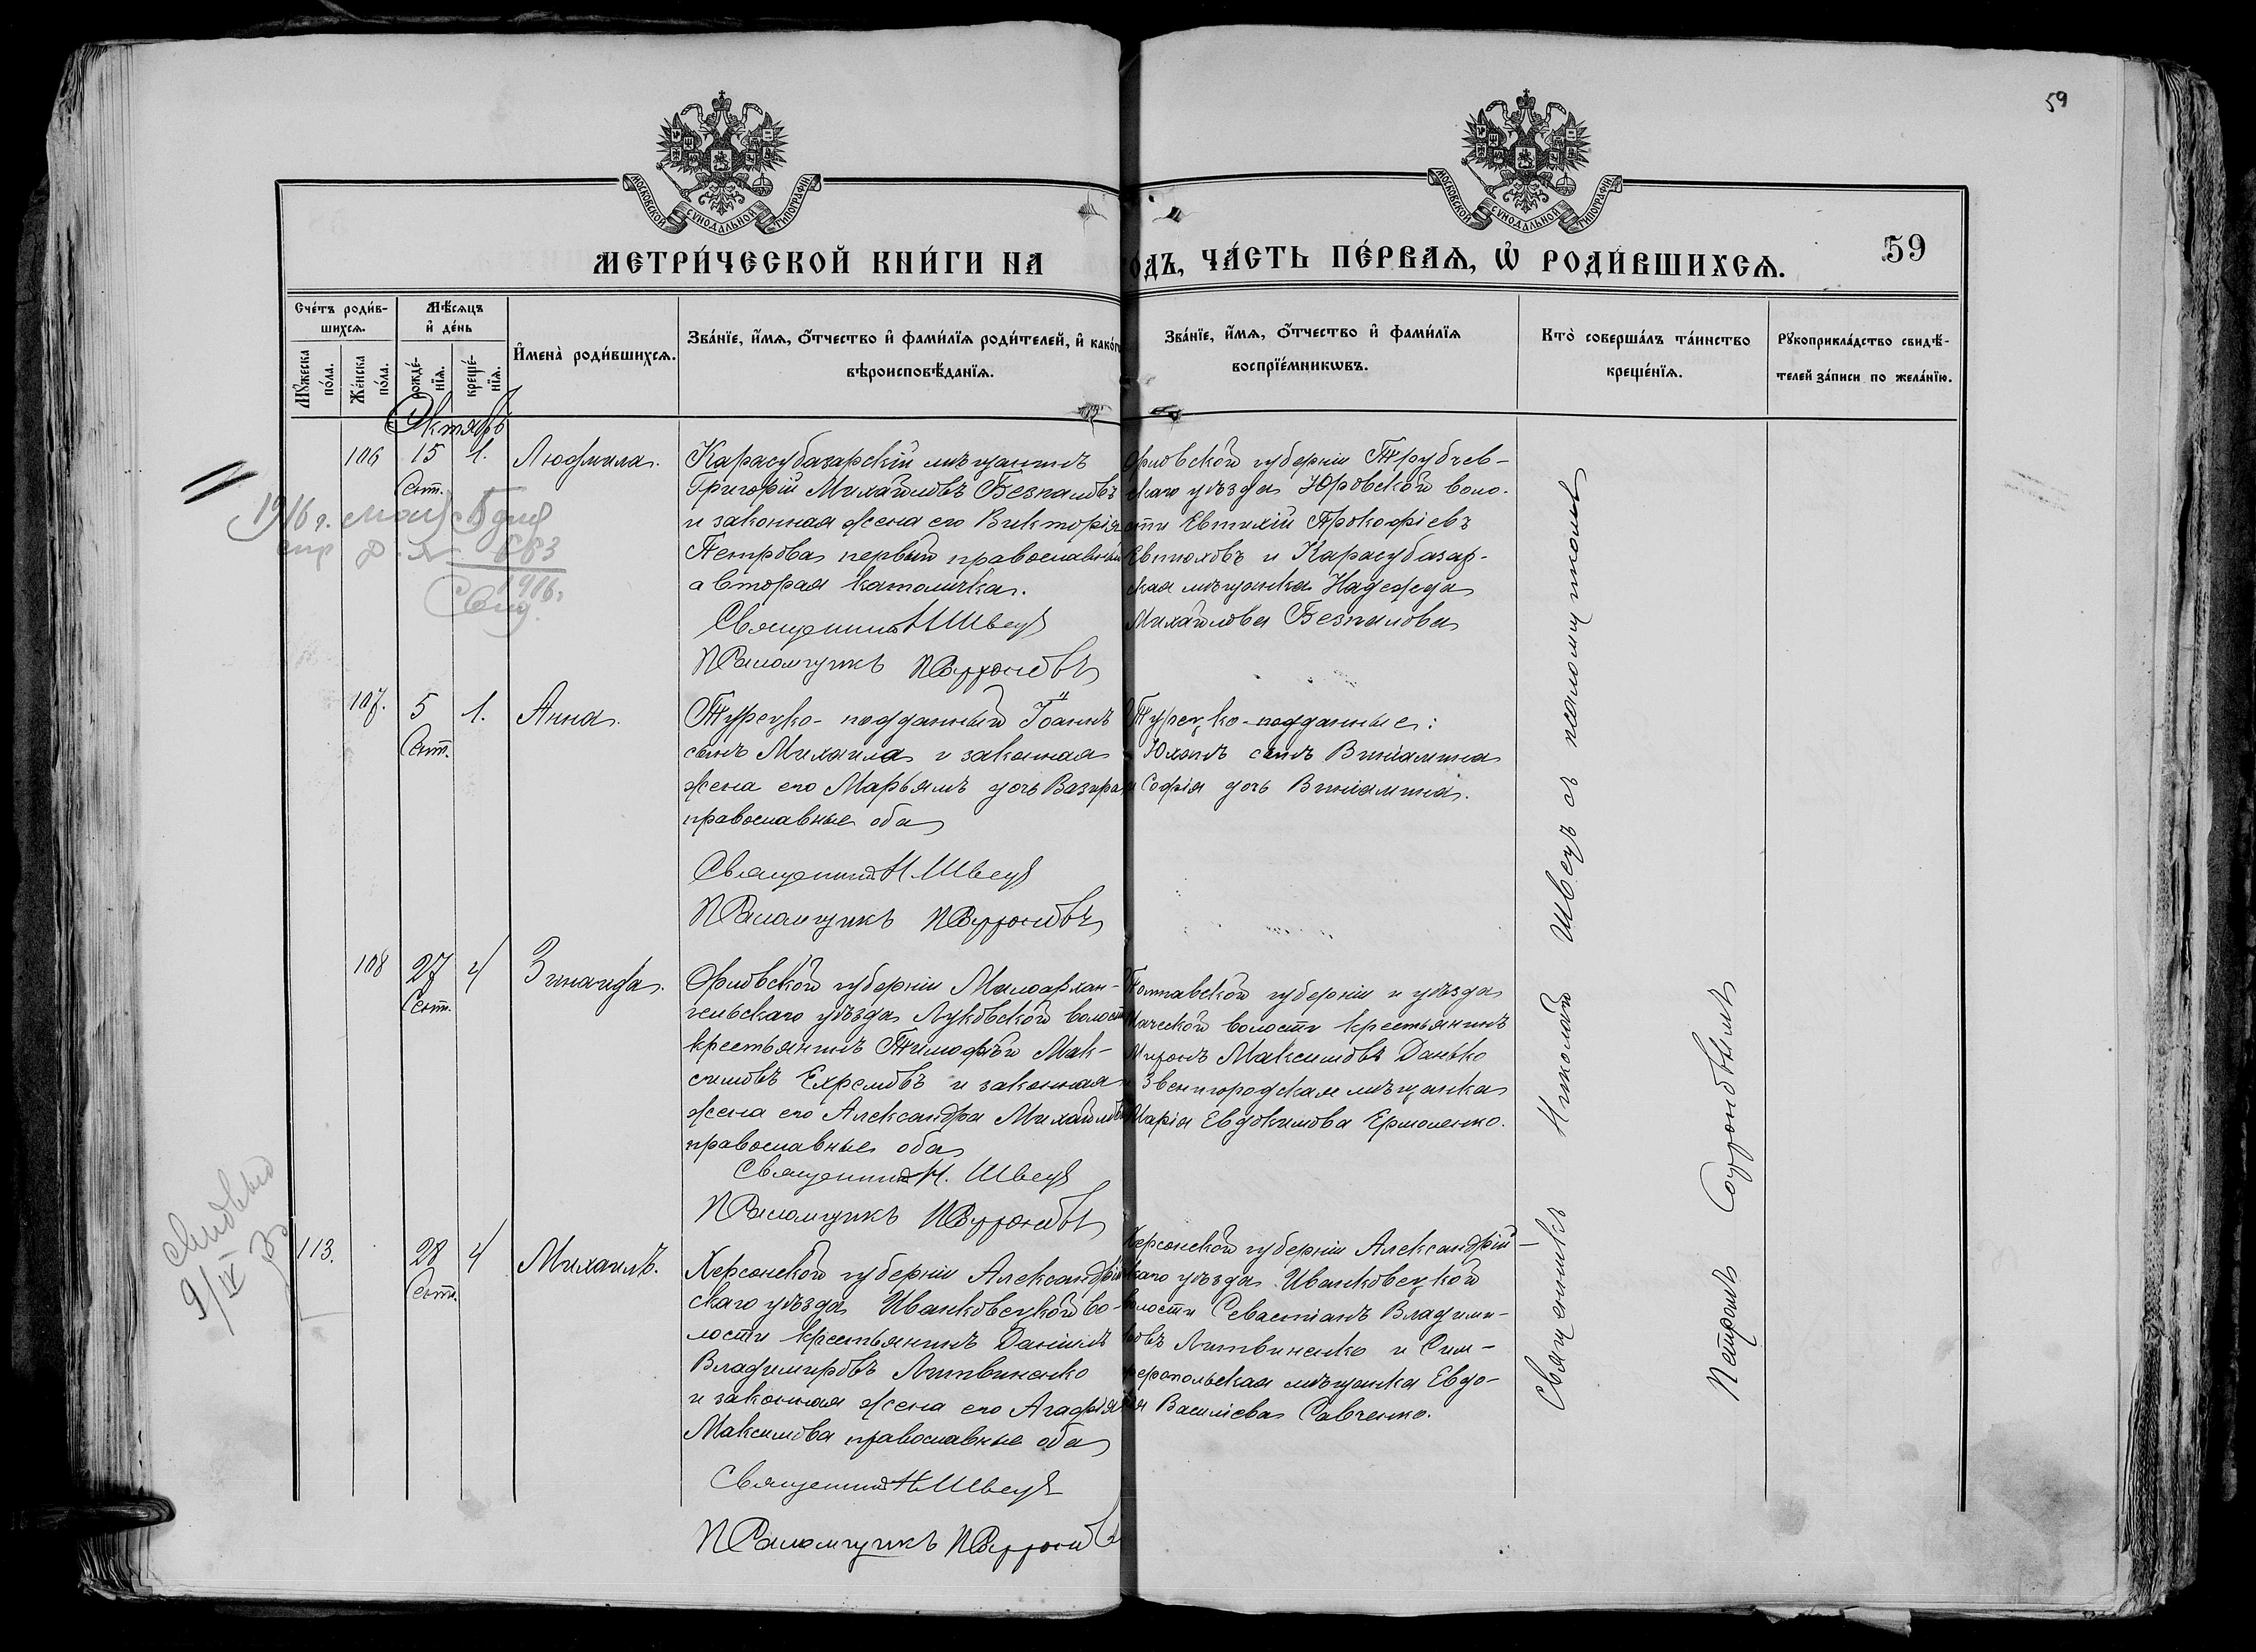 59
МОСКОВСКОЙ СѴНОДАЛЬНОЙ ТИПОГРАФІИ
МОСКОВСКОЙ СѴНОДАЛЬНОЙ ТИПОГРАФІИ
МЕТРИ́ЧЕСКОЙ КНИ́ГИ НА
ОДЪ, ЧА́СТЬ ПЕ́РВАѦ, Ѡ҆ РОДИ́ВШИХСѦ.
59
Сче́тъ роди́в-
шихсѧ.
Мꙋ́жеска по́ла.
Же́нска по́ла.
Мѣ́сѧцъ
и҆ де́нь
рожде́-нїѧ.
креще́-нїѧ.
И҆мена̀ роди́вшихсѧ.
Зва́нїе, и҆́мѧ, ѻ҆́тчество и҆ фами́лїѧ роди́телей, и҆ како́г
вѣроисповѣ́данїѧ.
Зва́нїе, и҆́мѧ, ѻ҆́тчество и҆ фами́лїѧ
воспрїе́мникѡвъ.
Кто̀ соверша́лъ та́инство
креще́нїѧ.
Рꙋкоприкла́дство свидѣ́-
телей за́писи по жела́нїю.
Октябрь
106
15
Сент.
1.
Людмила.
Карасубазарскій мѣщанинъ
Григорій Михайловъ Безпаловъ
и законная жена его Викторія
Петрова первый православный
а вторая католичка.
Священникъ Н Швецъ
Псаломщикъ П
Орловской губерніи Трубчев-
скаго уѣзда Юровской воло-
сти Евтихій Прокофіевъ
Евтюховъ и Карасубазар-
ская мѣщанка Надежда
Михайлова Безпалова
1916 г. 5 дня
883
1916 г.
107.
5
Сент.
1.
Анна.
Турецко-подданный Іоаннъ
сынъ Михаила и законная
жена его Марьямъ дочь Вазира
православные оба
Священникъ Н. Швецъ
Псаломщикъ П
Турецко-подданные:
Юханъ сынъ Виніамина
и Софія дочь Виніамина.
108
27
Сент.
4
Зинаида.
Орловской губерніи Малоархан-
гельскаго уѣзда Луковской волости
крестьянинъ Тимофѣй Мак-
симовъ Ехремовъ и законная
жена его Александра Михайлова
православные оба
Священникъ Н. Швецъ
Псаломщикъ П
Полтавской губерніи и уѣзда
Маческой волости крестьянинъ
Миронъ Максимовъ Данько
и Звенигородская мѣщанка
Марія Евдокимова Ермоленко.
9/IV
113.
28
Сент.
4
Михаилъ.
Херсонской губерніи Александрій-
скаго уѣзда Иванковецкой во-
лости крестьянинъ Даніилъ
Владимировъ Литвиненко
и законная жена его Агафія
Максимова православные оба
Священникъ Н. Швецъ
Псаломщикъ П
Херсонской губерніи Александрій-
скаго уѣзда Иванковецкой
волости Севастіанъ Владими-
ровъ Литвиненко и Сим-
феропольская мѣщанка Евдо-
кія Василіева Савченко.
Священникъ Николай Швецъ съ псаломщикомъ
Петромъ